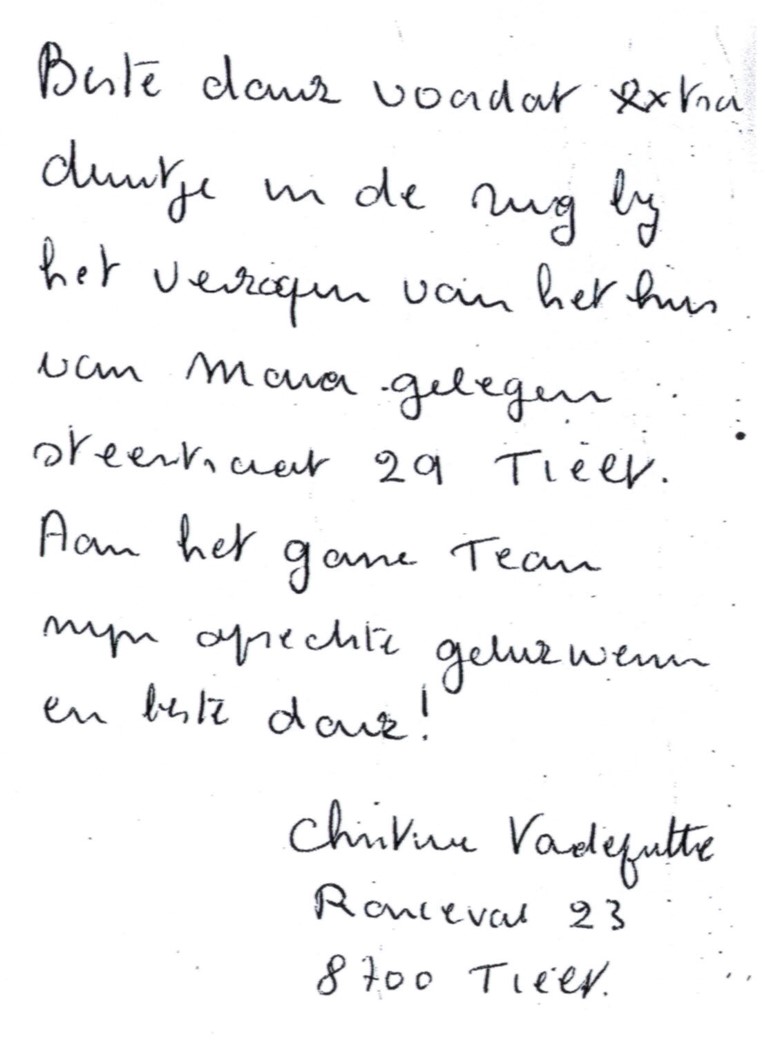 Beste dank voor dat extra
duwtje in de rug bij
het verkopen van het huis
van Mama gelegen
steenstraat 29 Tielt.
Aan het ganse Team
mijn oprechte gelukwensen
en beste dank!
Christine Vadeputte
Ronceval 23
8700 Tielt.